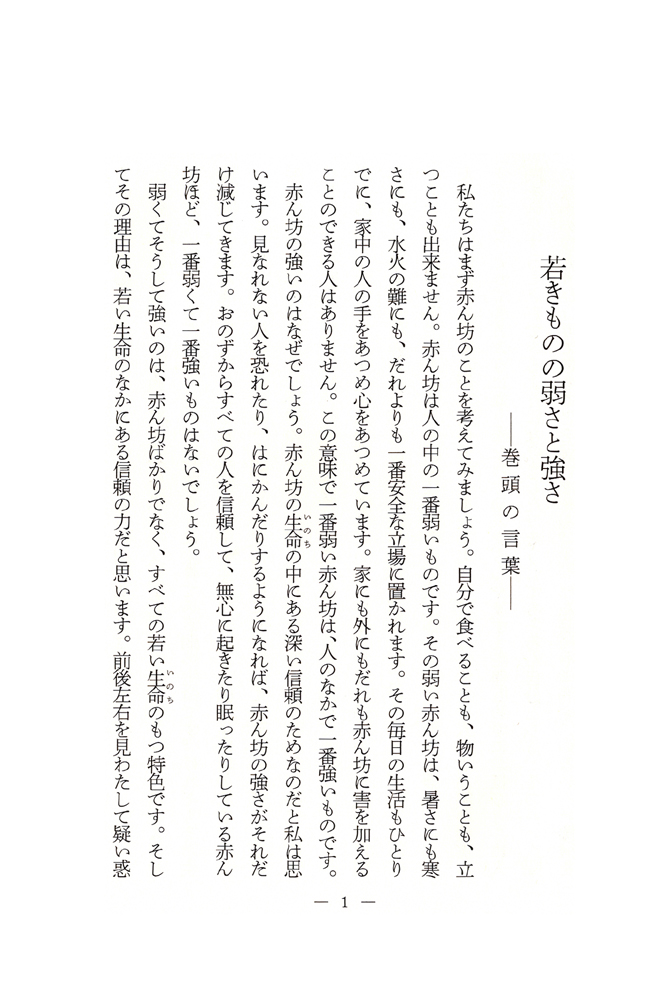 若きものの弱さと強さ
――巻頭の言葉――
私たちはまず赤ん坊のことを考えてみましょう。自分で食べることも、物いうことも、立
つことも出来ません。赤ん坊は人の中の一番弱いものです。その弱い赤ん坊は、暑さにも寒
さにも、水火の難にも、だれよりも一番安全な立場に置かれます。その毎日の生活もひとり
でに、家中の人の手をあつめ心をあつめています。家にも外にもだれも赤ん坊に害を加える
ことのできる人はありません。この意味で一番弱い赤ん坊は、人のなかで一番強いものです。
赤ん坊の強いのはなぜでしょう。赤ん坊の生命いのちの中にある深い信頼のためなのだと私は思
います。見なれない人を恐れたり、はにかんだりするようになれば、赤ん坊の強さがそれだ
け減じてきます。おのずからすべての人を信頼して、無心に起きたり眠ったりしている赤ん
坊ほど、一番弱くて一番強いものはないでしょう。
弱くてそうして強いのは、赤ん坊ばかりでなく、すべての若い生命いのちのもつ特色です。そし
てその理由は、若い生命のなかにある信頼の力だと思います。前後左右を見わたして疑い惑
― 1 ―